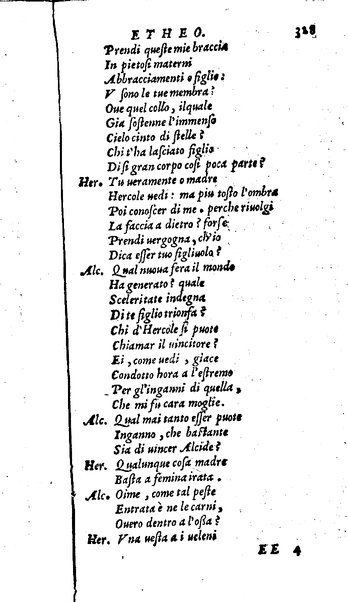 ETHEO. 328
Prendi queste mie braccia
In pietosi materni
Abbracciamenti o figlio?
V sono le tue membra?
Oue quel collo, ilquale
Gia sostenne l'immenso
Cielo cinto di stelle?
Chi t'ha lasciato figlio
Di si gran corpo cosi poca parte?
Her. Tu ueramente o madre
Hercole uedi: ma piu tosto l'ombra
Poi conoscer di me. perche riuolgi
La faccia a dietro? forse
Prendi uergogna, ch'io
Dica esser tuo figliuolo?
Alc. Qual nuoua fera il mondo
Ha generato? quale
Sceleritate indegna
Di te figlio trionfa?
Chi d'Hercole si puote
Chiamar il uincitore?
Ei, come uedi, giace
Condotto hora a l'estremo
Per gl'inganni di quella,
Che mi fu cara moglie.
Alc. Qual mai tanto esser puote
Inganno, che bastante
Sia di uincer Alcide?
Her. Qualunque cosa madre
Basta a femina irata.
Alc. Oime, come tal peste
Entrata è ne le carni,
Ouero dentro a l'ossa?
Her. Vna uesta a i ueleni
EE 4